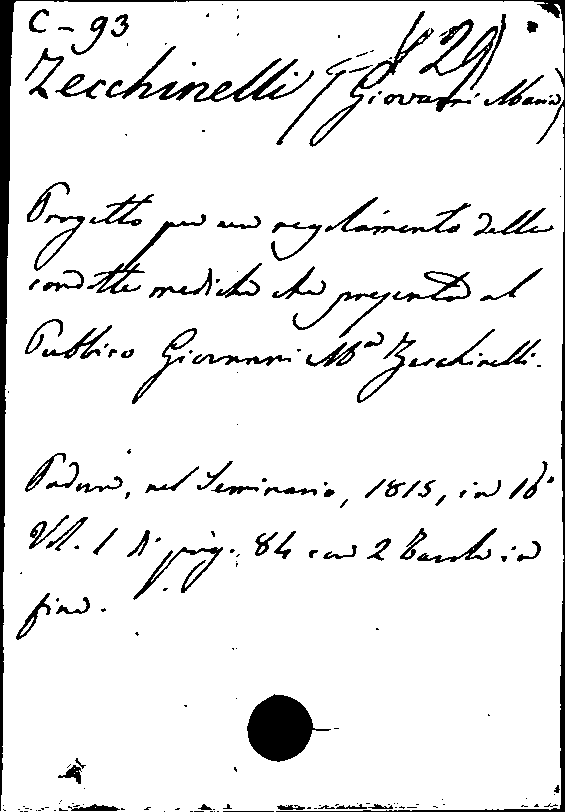 C - 93
Zecchinelli (Giovanni Maria) 29
Progetto per un regolamento delle
condotte mediche che presenta al
Pubblico Giovanni Mª Zecchinelli.
Padova, nel Seminario, 1815, in 16°
Vol. 1 di pag. 84 con 2 Tavole in
fine.